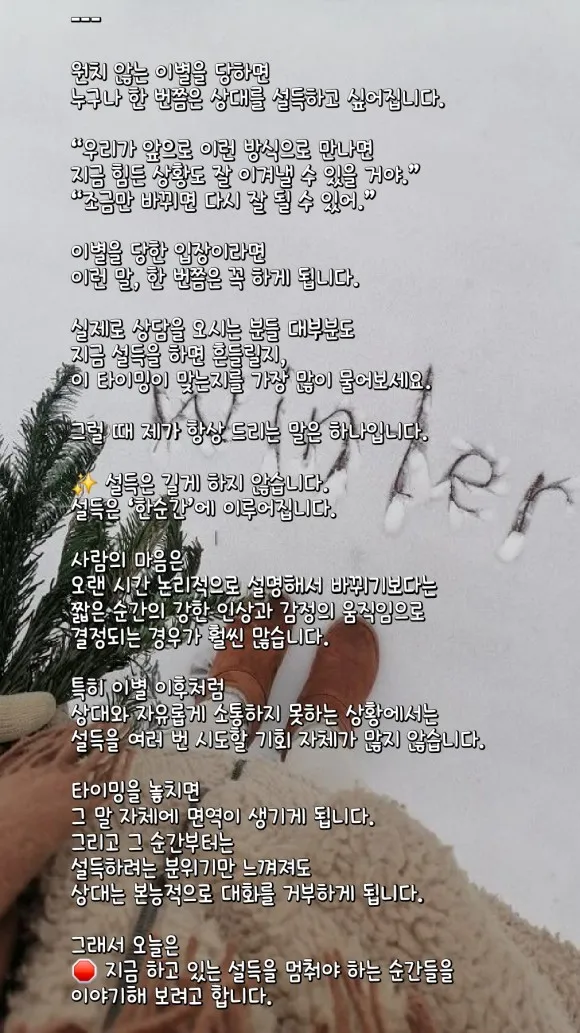 ---
원치 않는 이별을 당하면
누구나 한 번쯤은 상대를 설득하고 싶어집니다.
“우리가 앞으로 이런 방식으로 만나면
지금 힘든 상황도 잘 이겨낼 수 있을 거야.”
“조금만 바뀌면 다시 잘 될 수 있어.”
이별을 당한 입장이라면
이런 말, 한 번쯤은 꼭 하게 됩니다.
실제로 상담을 오시는 분들 대부분도
지금 설득을 하면 흔들릴지,
이 타이밍이 맞는지를 가장 많이 물어보세요.
winter
그럴 때 제가 항상 드리는 말은 하나입니다.
✨ 설득은 길게 하지 않습니다.
설득은 ‘한순간’에 이루어집니다.
사람의 마음은
오랜 시간 논리적으로 설명해서 바뀌기보다는
짧은 순간의 강한 인상과 감정의 움직임으로
결정되는 경우가 훨씬 많습니다.
특히 이별 이후처럼
상대와 자유롭게 소통하지 못하는 상황에서는
설득을 여러 번 시도할 기회 자체가 많지 않습니다.
타이밍을 놓치면
그 말 자체에 면역이 생기게 됩니다.
그리고 그 순간부터는
설득하려는 분위기만 느껴져도
상대는 본능적으로 대화를 거부하게 됩니다.
그래서 오늘은
🛑 지금 하고 있는 설득을 멈춰야 하는 순간들을
이야기해 보려고 합니다.